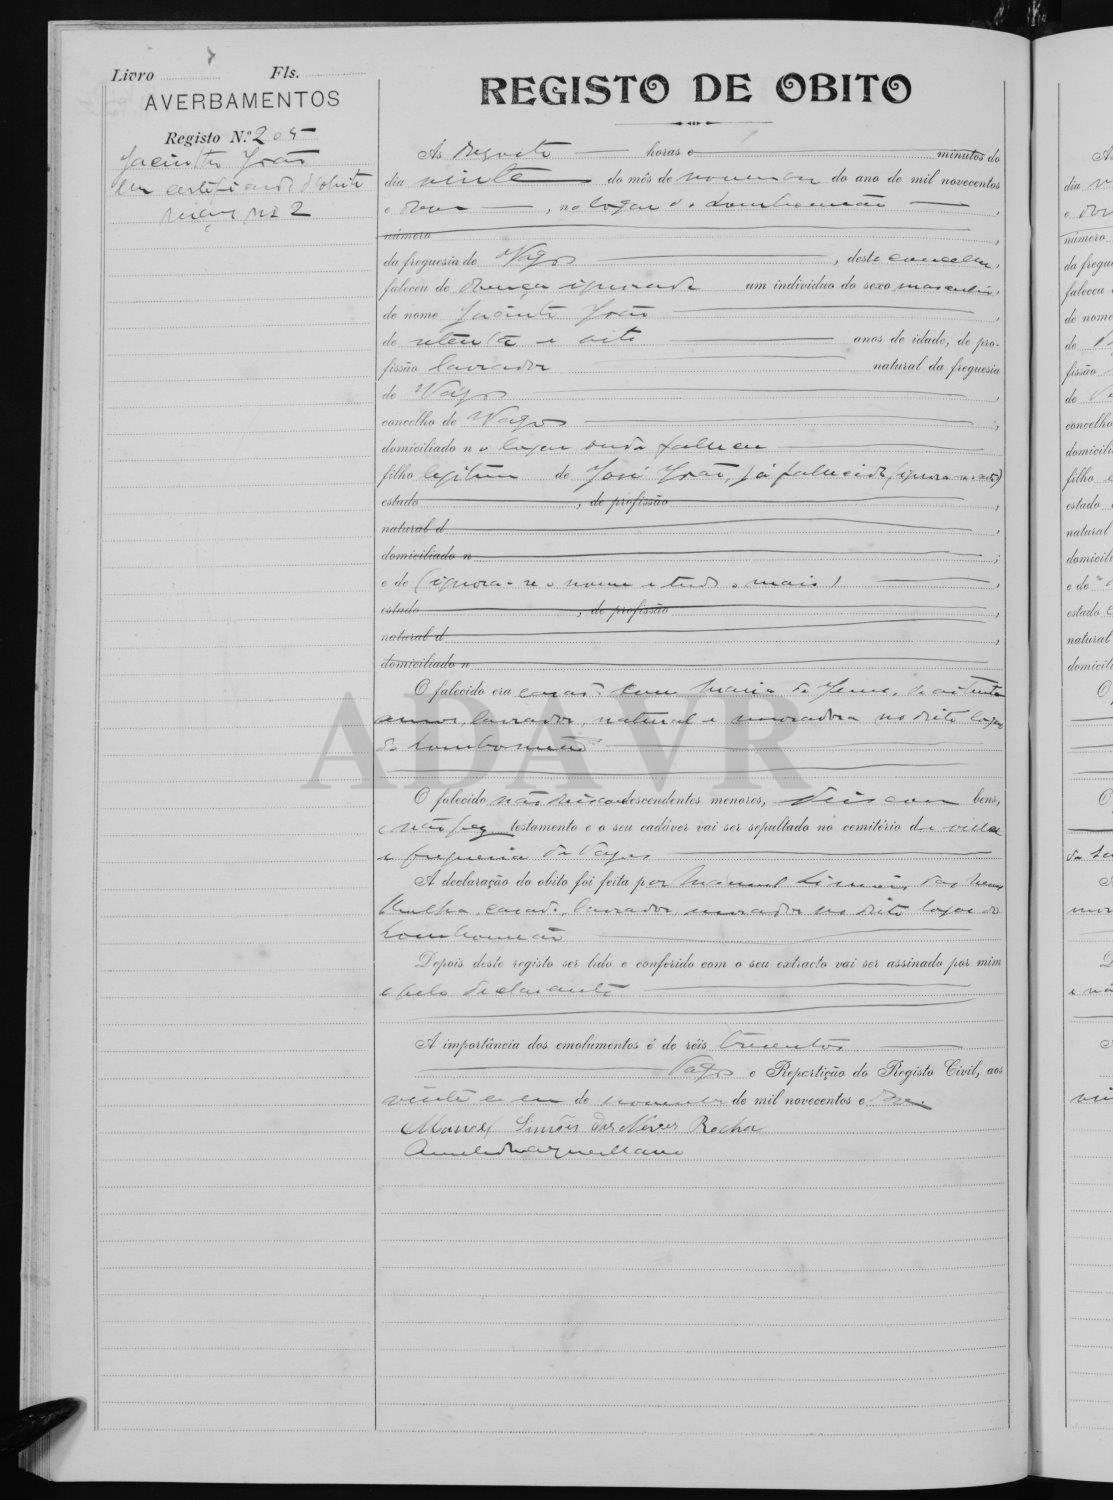 Livro Fls.
AVERBAMENTOS
Registo N.º 205
Jacintho João
certificado d'obito
nº 2
REGISTO DE OBITO
As dezoito horas e minutos do
dia vinte do mês de novembro do ano de mil novecentos
e onze, no logar de Lombomeão,
número
da freguesia de Vagos, deste concelho,
faleceu de doença ignorada um individuo do sexo masculino,
de nome Jacinto João,
de setenta e oito anos de idade, de pro-
fissão lavrador natural da freguesia
de Vagos,
concelho de Vagos,
domiciliado no logar onde faleceu
filho legitimo de José João, já falecido (ignora-se o mais)
estado, de profissão,
natural d,
domiciliado n;
e de (ignora-se o nome e tudo o mais),
estado, de profissão,
natural d,
domiciliado n
O falecido era casado com Maria de Jesus, de setenta
annos, lavradora, natural e moradora no dito logar
de Lombomeão
O falecido não deixou descendentes menores, deixou bens,
e não fez testamento e o seu cadáver vai ser sepultado no cemitério da villa
e freguesia de Vagos
A declaração do obito foi feita por Manuel Simões das Neves
Rocha, casado, lavrador, morador no dito logar de
Lombomeão
Depois deste registo ser lido e conferido com o seu extracto vai ser assinado por mim
e pelo declarante
A importância dos emolumentos é de réis trezentos
Vagos e Repartição do Registo Civil, aos
vinte e um de novembro de mil novecentos e onze.
Manoel Simões das Neves Rocha
ADAVR
As
dia
e
número
da fregu
faleceu
de nome
de
fissão
de
concelho
domicili
filho
estado
natural
domicili
e de
estado
natural
domicili
O
O